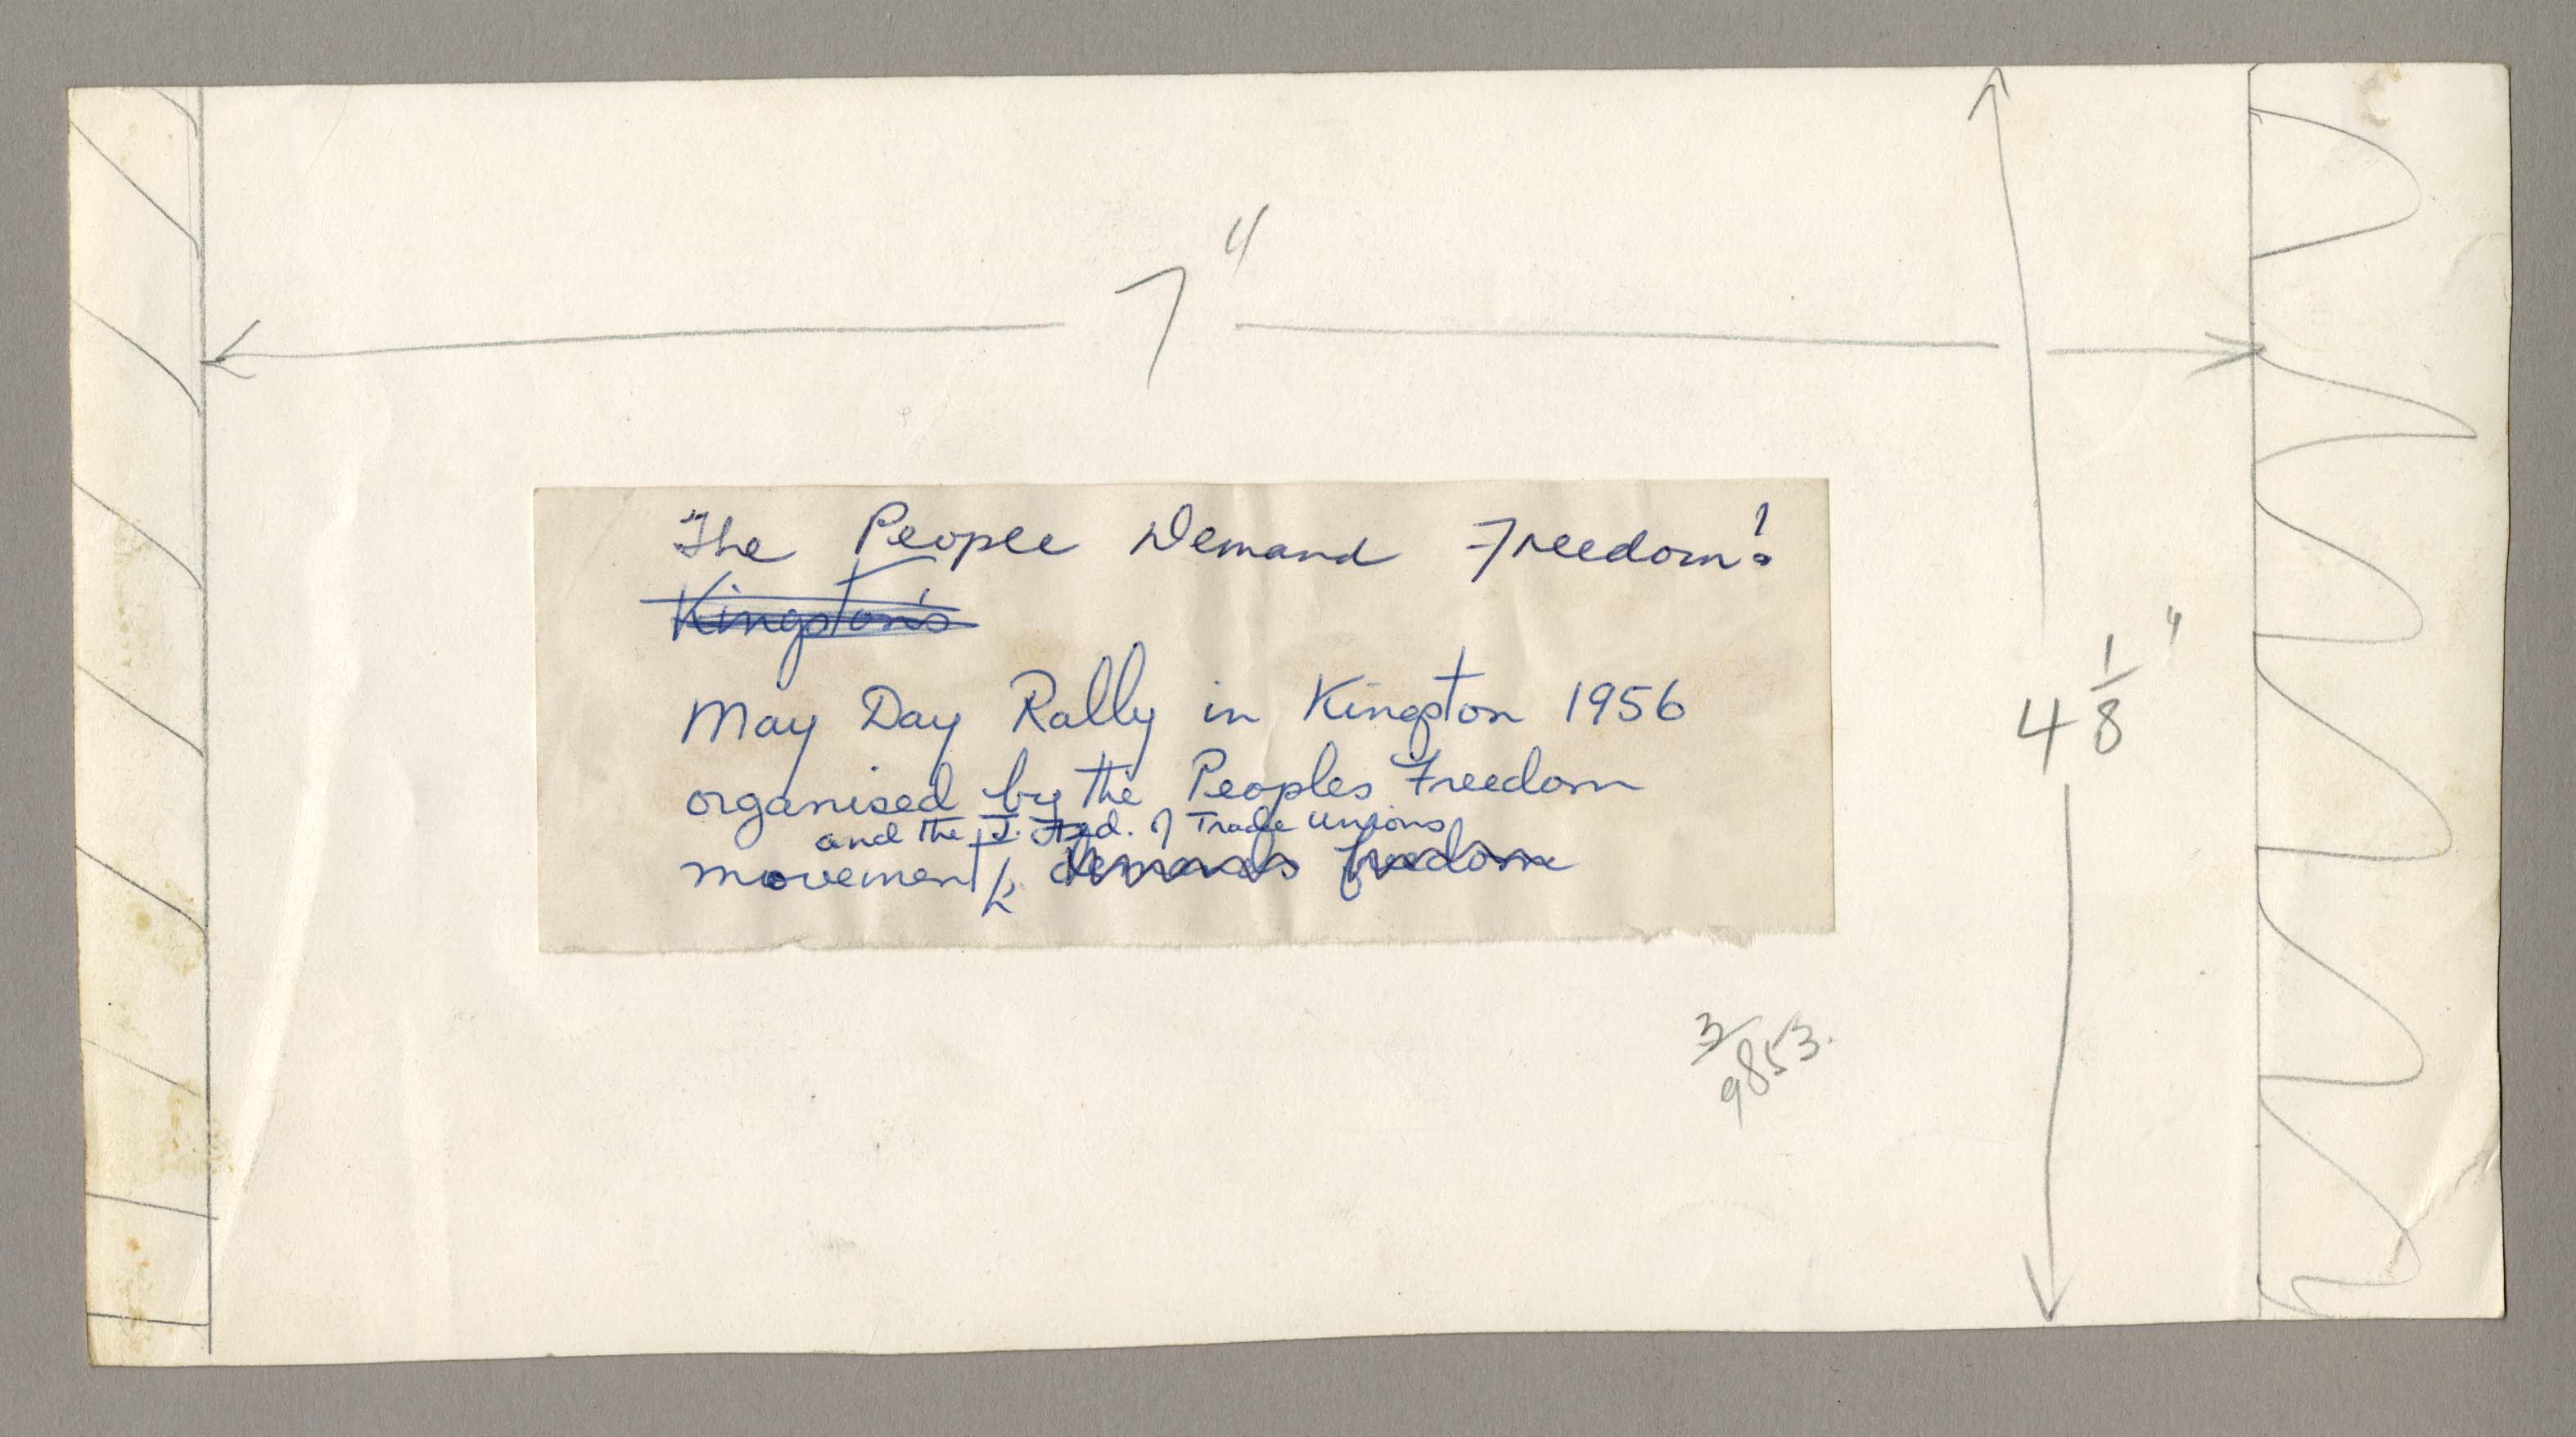 7"
The People Demand Freedom!
Kingston's
May Day Rally in Kingston 1956
organised by the Peoples Freedom
and the J. Fed. of Trade Unions
movement, demands freedom
4 1/8"
3/9853.